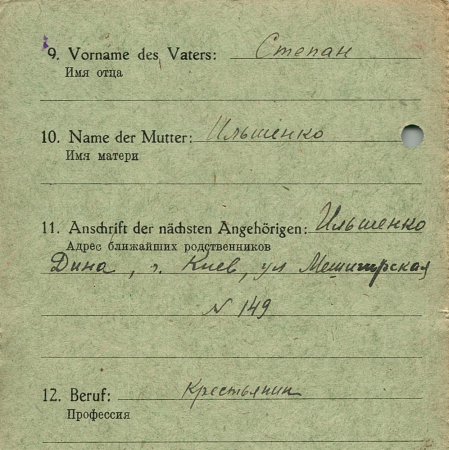 9. Vorname des Vaters: Степан
Имя отца
10. Name der Mutter: Ильшенко
Имя матери
11. Anschrift der nächsten Angehörigen: Ильшенко
Адрес ближайших родственников
Дина, г. Киев, ул Межигорская
N 149
12. Beruf: Крестьянин
Профессия